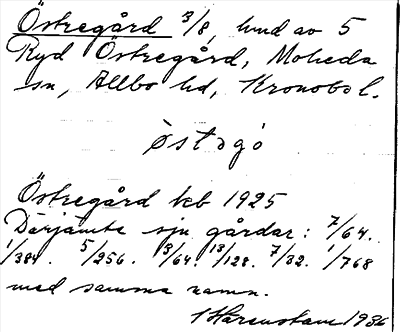 Östregård 3/8, hmd av 5
Ryd Östregård, Moheda
sn, Allbo hd, Kronobg l.
òstəgó
Östregård kb 1925
Därjämte sju gårdar: 7/64.
1/384. 5/256. 3/64. 13/128. 7/32. 1/768
med samma namn.
1936